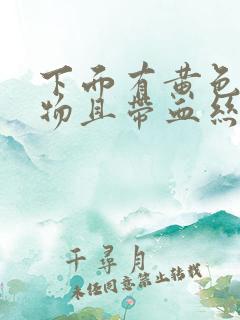 下而有黄色
物且带血丝
千尋月
未经同意禁止转载